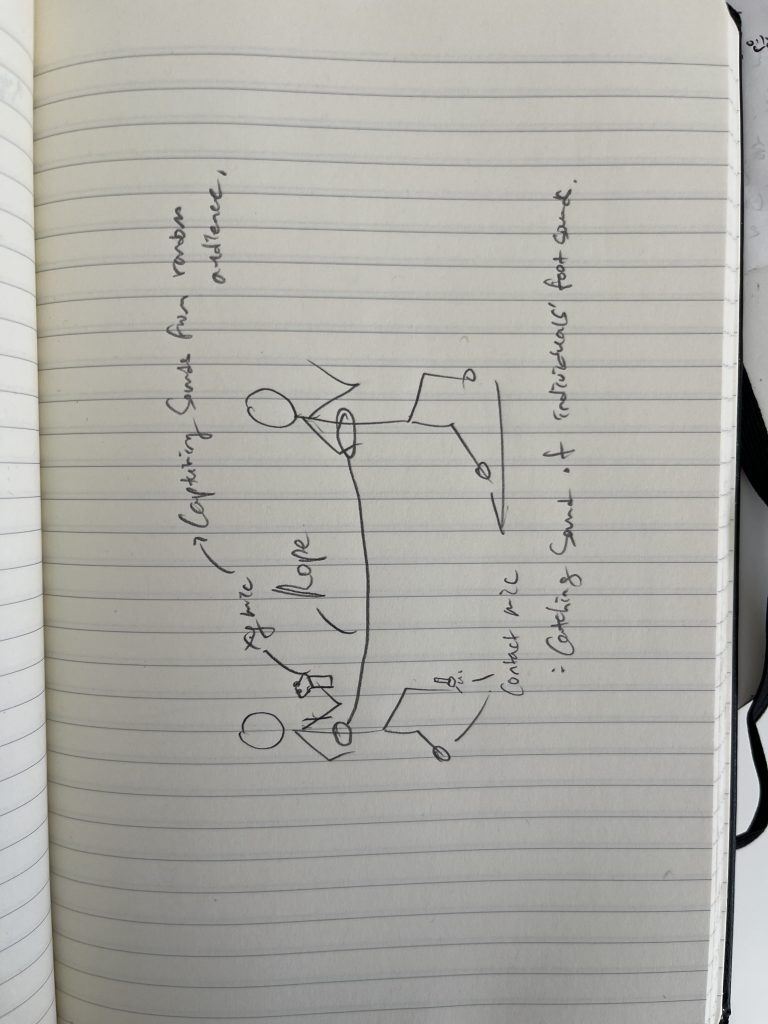 Capturing Sounds from random
audience.
xy mic
Rope
Contact mic
: Catching Sound of individuals' foot sounds.